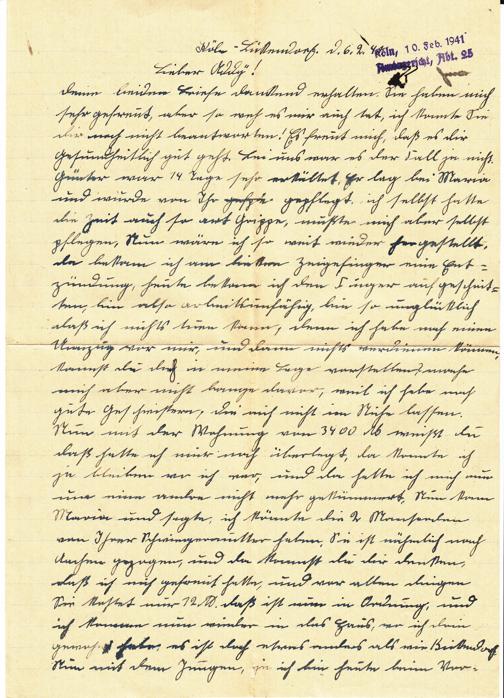 Köln - Bickendorf. d. 6. 2. 41
Köln, 10. Feb. 1941
Amtsgericht, Abt. 25
Lieber Addy!
deine beiden Briefe dankend erhalten. Sie haben mich
sehr gefreut, aber so weh es mir auch tat, ich konnte Sie
dir noch nicht beantworten! Es freut mich, daß es dir
Gesundheitlich gut geht. bei uns war es der Fall ja nicht.
Günter war 14 Tage sehr erkältet. Er lag bei Maria
und wurde von Ihr gepflegt. ich selbst hatte
die Zeit auch so art Grippe, mußte mich aber selbst
pflegen, Nun wäre ich so weit wieder hergestellt,
da bekam ich am linken Zeigefinger eine Ent=
zündung, heute bekam ich den Finger aufgeschnit=
ten, bin also arbeitsunfähig, bin so unglücklich
daß ich nichts tuen kann, denn ich habe noch einen
Umzug vor mir, und dann nichts verdienen können,
kannst du dich in meine Lage vorstellen? mache
mich aber nicht bange davor, weil ich habe noch
gute Geschwistern, die mich nicht im Stiche lassen.
Nun mit der Wohnung von 34 00 weißt du
daß hatte ich mir noch überlegt, da konnte ich
ja bleiben wo ich war, und da hatte ich mich nun
um eine andre nicht mehr gekümmert, Nun kam
Maria und sagte, ich könnte die 2 Mansarden
von Ihrer Schwiegermutter haben, Sie ist nähmlich nach
Aachen gezogen, und da kannst du dir denken,
daß ich mich gefreut hatte, und vor allen dingen
Sie kostet nur 12. daß ist nun in Ordnung, und
ich komme nun wieder in das Haus, wo ich drin
gewohnt habe, es ist doch etwas andes als wie Bickendorf
Nun mit dem Jungen, ich bin heute beim Vor-